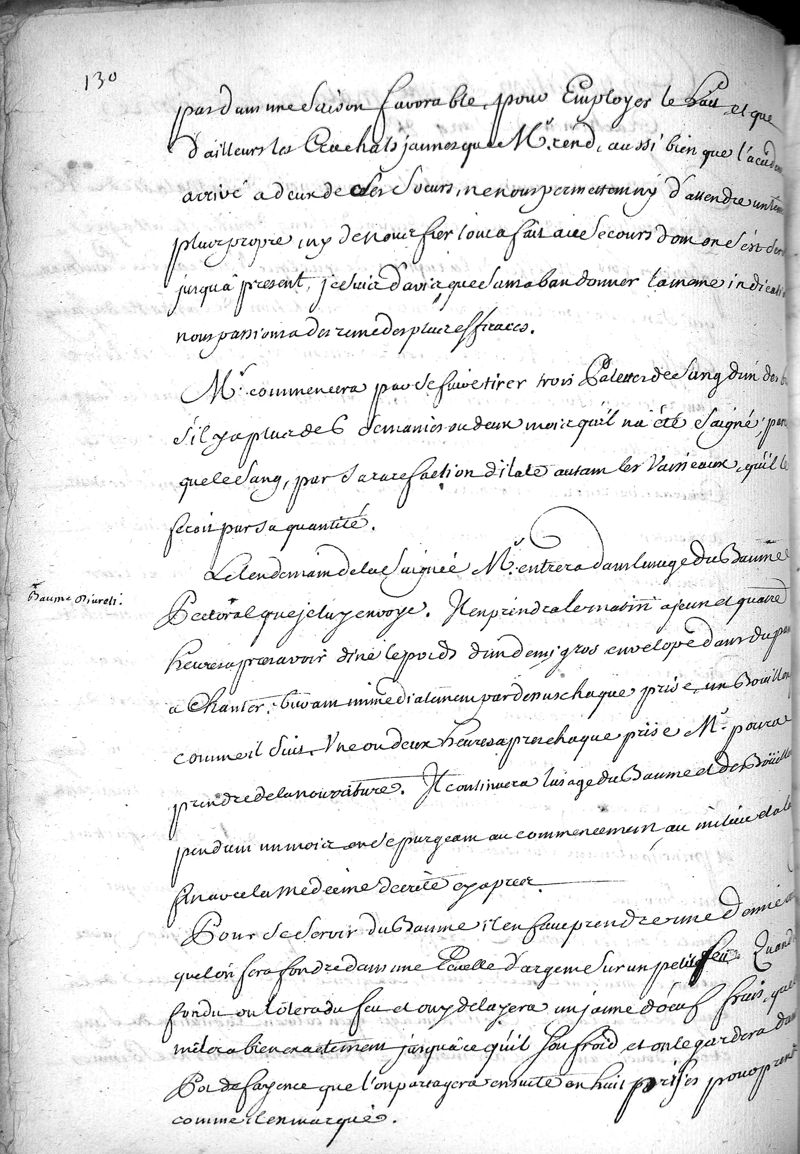 130
pas dans une saison favorable, pour Employer le lait et que
d'ailleurs les Crachats jaunes que Mr. rend, aussi bien que l'accid
arrivé a deux de ses soeurs, ne nous permettent ny d'attendre un tem
plus propre, ny de nous fier tout a fait au secours dont on s'est
jusqu'à present, je suis d'avis que sans abandonner la meme indicati
nous passions a des remedes plus efficaces.
Mr. commencera par se faire tirer trois Palettes de sang d'un des
s'il y a plus de 6 semaines ou deux mois qu'il n'a été saigné, par
que le sang, par sa rarefaction dilate autant les Vaisseaux, qu'il le
feroit par sa quantité.
Le lendemain de la Saignée Mr. entrera dans l'usage du Baume
Baume Diureti.
Pectoral que je luy envoye. Il en prendra le matin a jeun et quatre
heures apres avoir diné le poids d'un demy gros envelopé dans du pain
a Chanter, buvant immediatement par dessus chaque prise, un Bouillon
comme il suit. Une ou deux heures apres chaque prise Mr. poura
prendre de la nourriture. Il continuera l'usage du Baume et des Boüillo
pendant un mois en se purgeant au commencement au milieu et a la
fin avec la medecine décrite cy apres.
Pour se servir du Baume il en faut prendre une Demie
que l'on fera fondre dans une Ecuelle d'argent sur un petit feu Quand
fondu on l'ôtera du feu et on y delayera un jaune d'oeuf frais, que
mêlera bien exactement jusqu'à ce qu'il soit froid, et on le gardera dans
Pot de fayence que l'on partagera ensuite en huit prises pour prend
comme il en marqué.